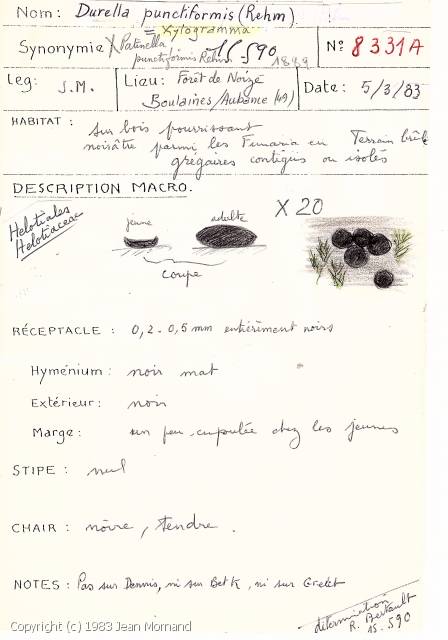 Nom: Durella punctiformis (Rehm)
= Xylogramma
Synonymie X Patinella 15.590 Nº 8331A
punctiformis Rehm 1889
Leg: J.M. Lieu: Forêt de Noizé Date: 5/3/83
Boulaines/Aubance (49)
HABITAT: sur bois pourrissant
noirâtre parmi les Funaria en Terrain brûlé
grégaires contigus ou isolés
DESCRIPTION MACRO.
Helotiales
Helotiaceae
jeune adulte X 20
coupe
RÉCEPTACLE : 0,2-0,5mm entièrement noirs
Hyménium: noir mat
Extérieur: noir
Marge: un peu cupulée chez les jeunes
STIPE : nul
CHAIR : noire, tendre.
NOTES : Pas sur Dennis, ni sur Bet K, ni sur Grelet
détermination
R. Bertault
15.590
Copyright (c) 1983 Jean Mornand